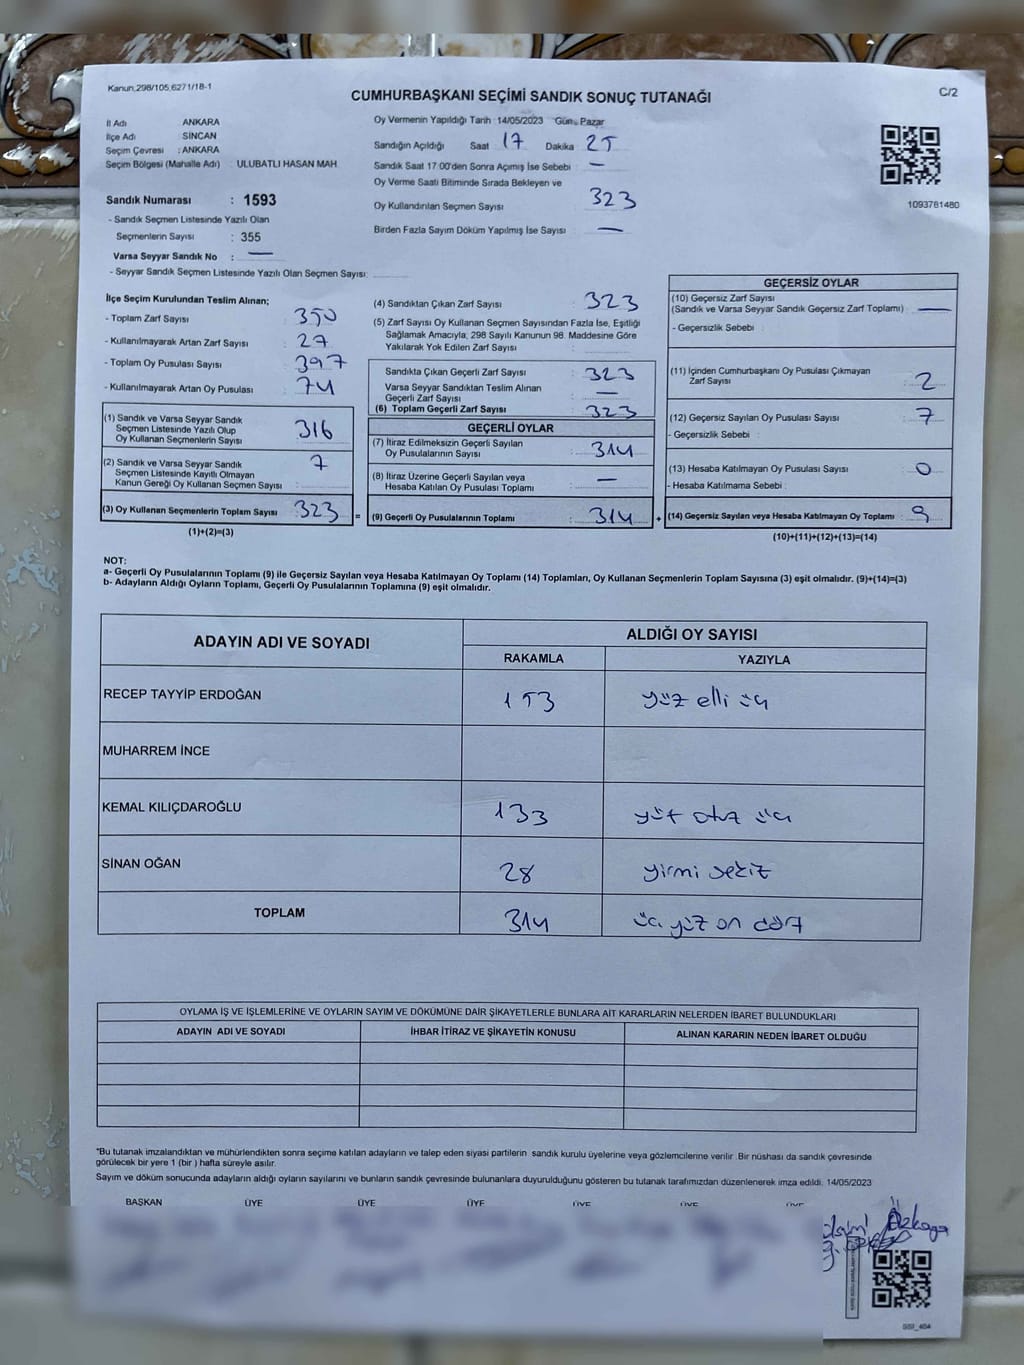 Kanun,298/105,6271/18-1
CUMHURBAŞKANI SEÇİMİ SANDIK SONUÇ TUTANAĞI
C/2
İl Adı ANKARA
İlçe Adı SİNCAN
Seçim Çevresi : ANKARA
Seçim Bölgesi (Mahalle Adı) : ULUBATLI HASAN MAH.
Sandık Numarası : 1593
- Sandık Seçmen Listesinde Yazılı Olan
Seçmenlerin Sayısı : 355
Varsa Seyyar Sandık No : —
- Seyyar Sandık Seçmen Listesinde Yazılı Olan Seçmen Sayısı:
Oy Vermenin Yapıldığı Tarih : 14/05/2023 Gün : Pazar
Sandığın Açıldığı Saat 17 Dakika 25
Sandık Saat 17:00'den Sonra Açımış İse Sebebi : —
Oy Verme Saati Bitiminde Sırada Bekleyen ve
Oy Kullandırılan Seçmen Sayısı : 323
Birden Fazla Sayım Döküm Yapılmış İse Sayısı : —
1093781480
İlçe Seçim Kurulundan Teslim Alınan;
- Toplam Zarf Sayısı : 350
- Kullanılmayarak Artan Zarf Sayısı : 27
- Toplam Oy Pusulası Sayısı : 397
- Kullanılmayarak Artan Oy Pusulası : 74
(1) Sandık ve Varsa Seyyar Sandık
Seçmen Listesinde Yazılı Olup
Oy Kullanan Seçmenlerin Sayısı : 316
(2) Sandık ve Varsa Seyyar Sandık
Seçmen Listesinde Kayıtlı Olmayan
Kanun Gereği Oy Kullanan Seçmen Sayısı : 7
(3) Oy Kullanan Seçmenlerin Toplam Sayısı : 323 =
(1)+(2)=(3)
(4) Sandıktan Çıkan Zarf Sayısı : 323
(5) Zarf Sayısı Oy Kullanan Seçmen Sayısından Fazla İse, Eşitliği
Sağlamak Amacıyla, 298 Sayılı Kanunun 98. Maddesine Göre
Yakılarak Yok Edilen Zarf Sayısı :
Sandıkta Çıkan Geçerli Zarf Sayısı : 323
Varsa Seyyar Sandıktan Teslim Alınan
Geçerli Zarf Sayısı : —
(6) Toplam Geçerli Zarf Sayısı : 323
GEÇERLİ OYLAR
(7) İtiraz Edilmeksizin Geçerli Sayılan
Oy Pusulalarının Sayısı : 314
(8) İtiraz Üzerine Geçerli Sayılan veya
Hesaba Katılan Oy Pusulası Toplamı : —
(9) Geçerli Oy Pusulalarının Toplamı : 314 +
GEÇERSİZ OYLAR
(10) Geçersiz Zarf Sayısı
(Sandık ve Varsa Seyyar Sandık Geçersiz Zarf Toplamı) : —
- Geçersizlik Sebebi :
(11) İçinden Cumhurbaşkanı Oy Pusulası Çıkmayan
Zarf Sayısı : 2
(12) Geçersiz Sayılan Oy Pusulası Sayısı : 7
- Geçersizlik Sebebi :
(13) Hesaba Katılmayan Oy Pusulası Sayısı : 0
- Hesaba Katılmama Sebebi :
(14) Geçersiz Sayılan veya Hesaba Katılmayan Oy Toplamı : 9
(10)+(11)+(12)+(13)=(14)
NOT:
a- Geçerli Oy Pusulalarının Toplamı (9) ile Geçersiz Sayılan veya Hesaba Katılmayan Oy Toplamı (14) Toplamları, Oy Kullanan Seçmenlerin Toplam Sayısına (3) eşit olmalıdır. (9)+(14)=(3)
b- Adayların Aldığı Oyların Toplamı, Geçerli Oy Pusulalarının Toplamına (9) eşit olmalıdır.
ADAYIN ADI VE SOYADI
ALDIĞI OY SAYISI
RAKAMLA YAZIYLA
RECEP TAYYİP ERDOĞAN 153 yüz elli üç
MUHARREM İNCE
KEMAL KILIÇDAROĞLU 133 yüz otuz üç
SİNAN OĞAN 28 yirmi sekiz
TOPLAM 314 üç yüz on dört
OYLAMA İŞ VE İŞLEMLERİNE VE OYLARIN SAYIM VE DÖKÜMÜNE DAİR ŞİKAYETLERLE BUNLARA AİT KARARLARIN NELERDEN İBARET BULUNDUKLARI
ADAYIN ADI VE SOYADI İHBAR İTİRAZ VE ŞİKAYETİN KONUSU ALINAN KARARIN NEDEN İBARET OLDUĞU
*Bu tutanak imzalandıktan ve mühürlendikten sonra seçime katılan adayların ve talep eden siyasi partilerin sandık kurulu üyelerine veya gözlemcilerine verilir. Bir nüshası da sandık çevresinde
görülecek bir yere 1 (bir ) hafta süreyle asılır.
Sayım ve döküm sonucunda adayların aldığı oyların sayılarını ve bunların sandık çevresinde bulunanlara duyurulduğunu gösteren bu tutanak tarafımızdan düzenlenerek imza edildi. 14/05/2023
BAŞKAN ÜYE ÜYE ÜYE ÜYE ÜYE ÜYE
Özkaya